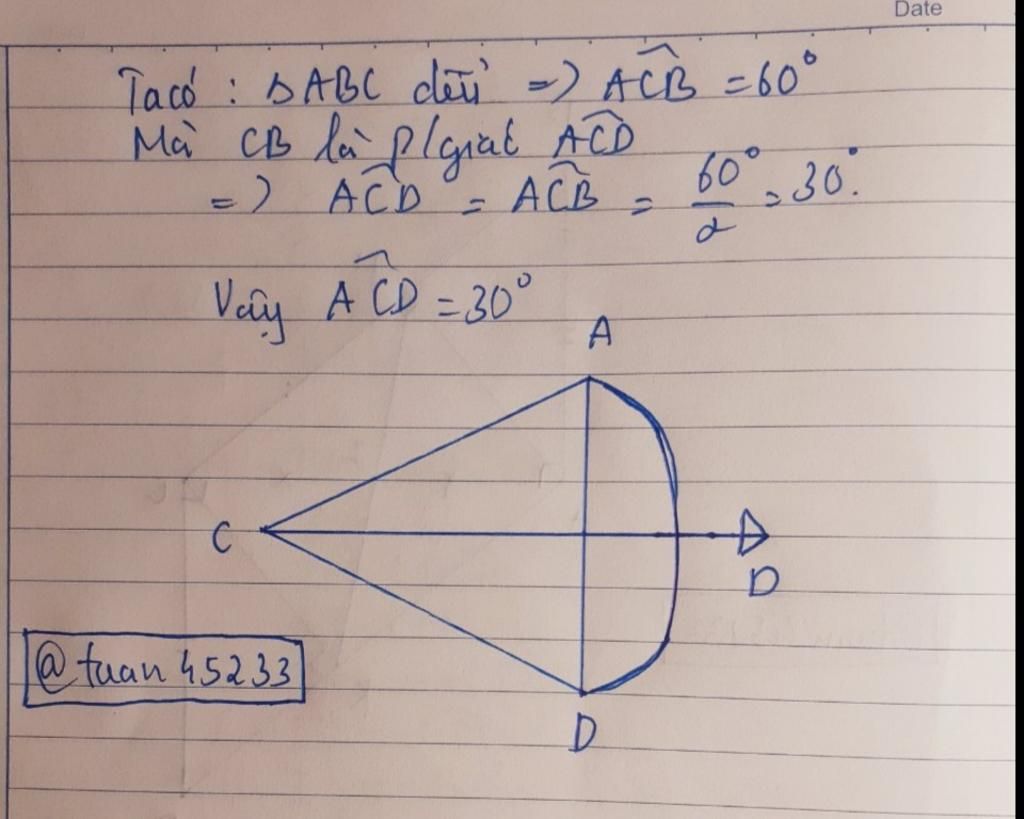 Date
Ta có : ΔABC đều => ACB = 60°
Mà CB là p/giác ACD
=> ACD = ACB = 60°/2 = 30°.
Vậy ACD = 30°
A
C
D
@tuan 45233
D